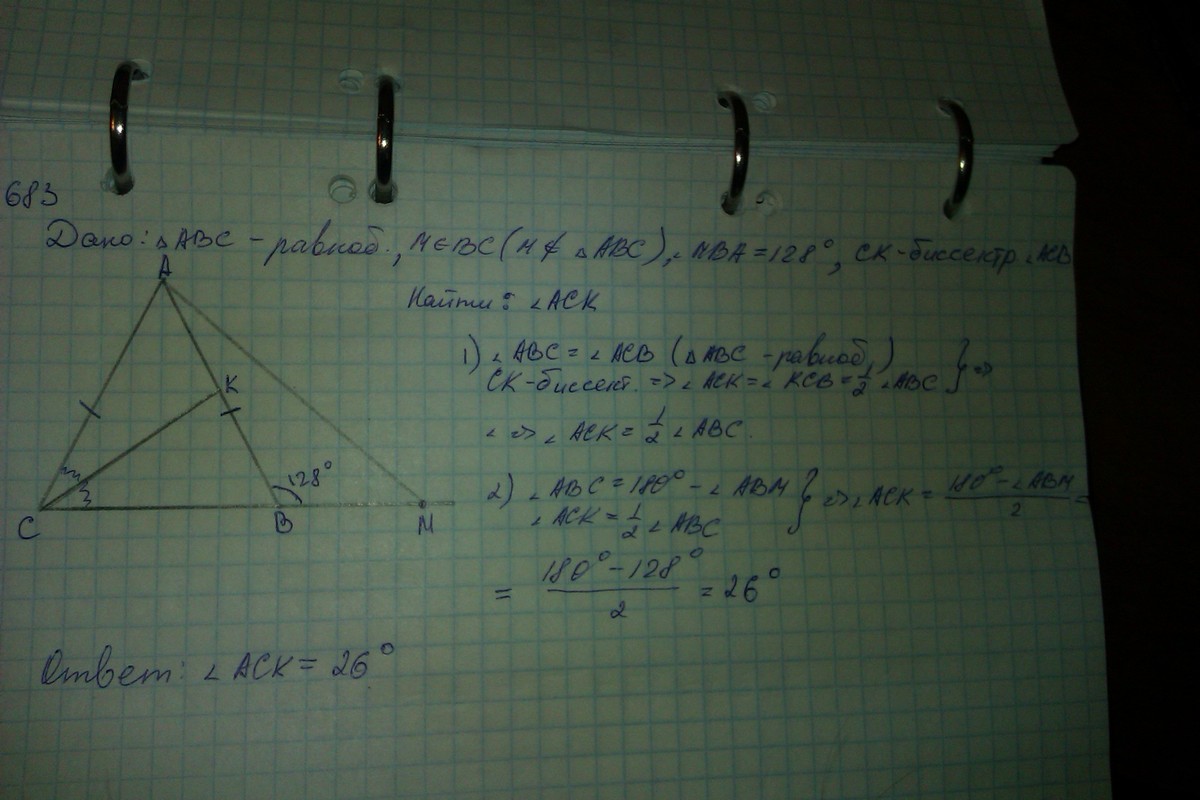 683
Дано: △ABC - равноб., M∈BC (M∉ △ABC), ∠MBA = 128°, CK-биссектр ∠ACB
Найти: ∠ACK
A
K
128°
C
B
M
1) ∠ABC = ∠ACB (△ABC - равноб.) } =>
CK-биссект. => ∠ACK = ∠KCB = 1/2 ∠ABC
∠ => ∠ACK = 1/2 ∠ABC.
2) ∠ABC = 180° - ∠ABM } => ∠ACK = (180° - ∠ABM)/2 =
∠ACK = 1/2 ∠ABC
= (180° - 128°)/2 = 26°
Ответ: ∠ACK = 26°